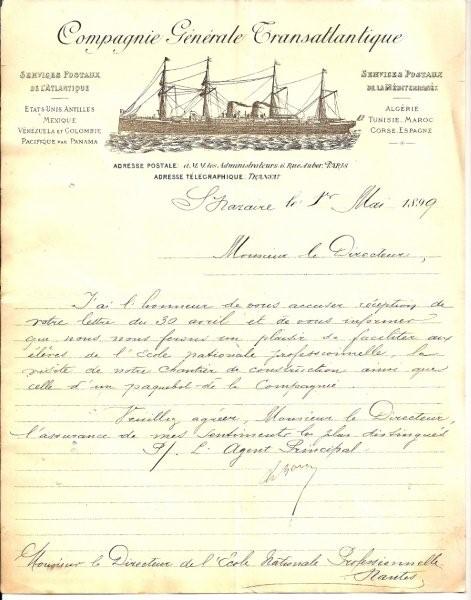 Compagnie Générale Transatlantique
SERVICES POSTAUX
DE L'ATLANTIQUE
ETATS-UNIS. ANTILLES
MEXIQUE
VENEZUELA ET COLOMBIE
PACIFIQUE PAR PANAMA
SERVICES POSTAUX
DE LA MÉDITERRANÉE
ALGÉRIE
TUNISIE. MAROC
CORSE. ESPAGNE
ADRESSE POSTALE: à M.M. les Administrateurs 6. Rue Auber. PARIS
ADRESSE TÉLÉGRAPHIQUE: TRANSAT
St Nazaire le 1er Mai 1899
Monsieur le Directeur,
J'ai l'honneur de vous accuser réception de
votre lettre du 30 avril et de vous informer
que nous nous ferons un plaisir de faciliter aux
élèves de l'École nationale professionnelle, la
visite de notre chantier de construction ainsi que
celle d'un paquebot de la Compagnie.
Veuillez agréer, Monsieur le Directeur,
l'assurance de mes sentiments les plus distingués
P/. L'Agent Principal.
Monsieur le Directeur de l'École Nationale Professionnelle
Nantes